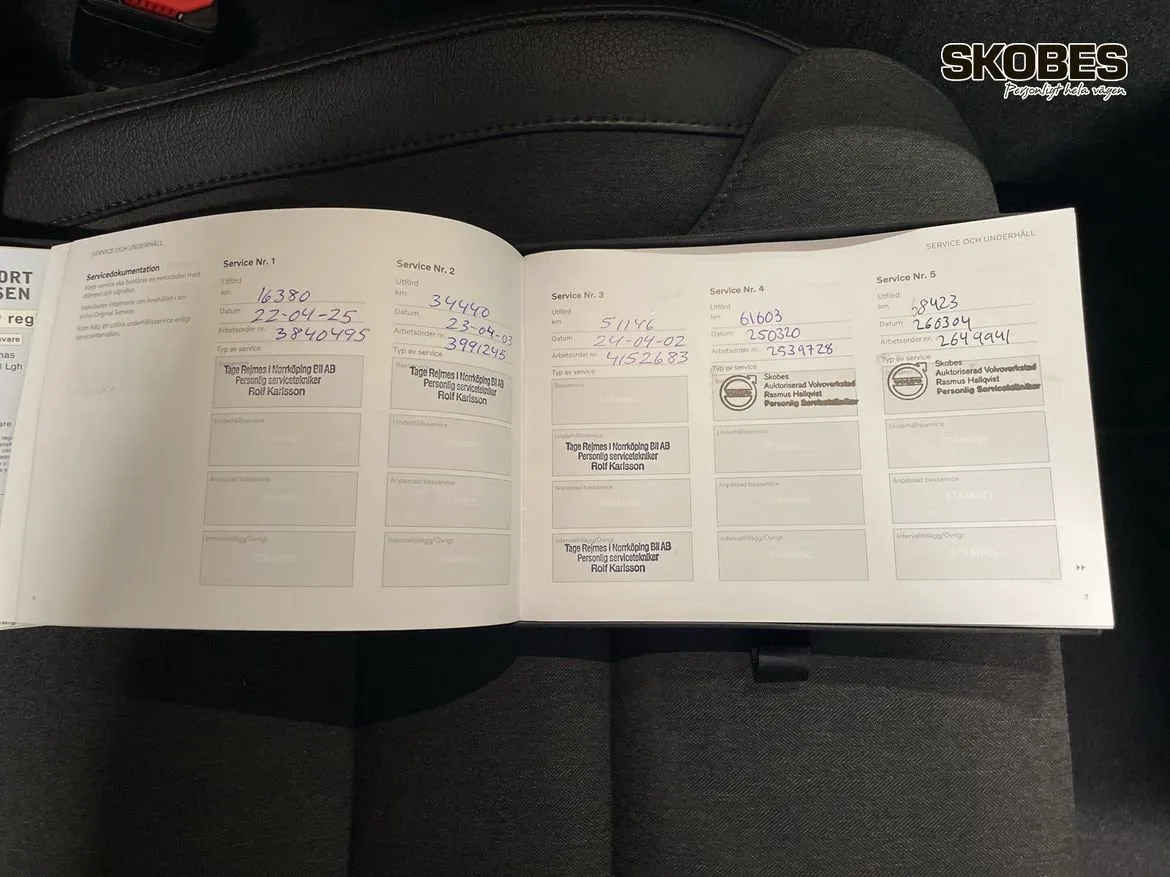 SKOBES
Personligt hela vägen
SERVICE OCH UNDERHÅLL
Servicedokumentation
Varje service ska bekräftas av verkstaden med
stämpel och signatur.
Verkstaden informerar om innehållet i din
Volvo Original Service.
Kom ihåg att utföra underhållsservice enligt
serviceintervallen.
Service Nr. 1
Utförd
km 16380
Datum 22-04-25
Arbetsorder nr. 3840495
Typ av service
Tage Rejmes i Norrköping Bil AB
Personlig servicetekniker
Rolf Karlsson
Underhållsservice
Anpassad basservice
Intervalltillägg/Övrigt
Service Nr. 2
Utförd
km 34440
Datum 23-04-03
Arbetsorder nr. 3991245
Typ av service
Tage Rejmes i Norrköping Bil AB
Personlig servicetekniker
Rolf Karlsson
Underhållsservice
Anpassad basservice
Intervalltillägg/Övrigt
SERVICE OCH UNDERHÅLL
Service Nr. 3
Utförd
km 51146
Datum 24-04-02
Arbetsorder nr. 4152683
Typ av service
Basservice
Underhållsservice
Tage Rejmes i Norrköping Bil AB
Personlig servicetekniker
Rolf Karlsson
Anpassad basservice
Intervalltillägg/Övrigt
Tage Rejmes i Norrköping Bil AB
Personlig servicetekniker
Rolf Karlsson
Service Nr. 4
Utförd
km 61603
Datum 250320
Arbetsorder nr. 2539728
Typ av service
Skobes
Auktoriserad Volvoverkstad
Rasmus Hallqvist
Personlig Servicetekniker
Underhållsservice
Anpassad basservice
Intervalltillägg/Övrigt
Service Nr. 5
Utförd
km 68423
Datum 260304
Arbetsorder nr. 2649941
Typ av service
Skobes
Auktoriserad Volvoverkstad
Rasmus Hallqvist
Personlig Servicetekniker
Underhållsservice
Anpassad basservice
Intervalltillägg/Övrigt
7